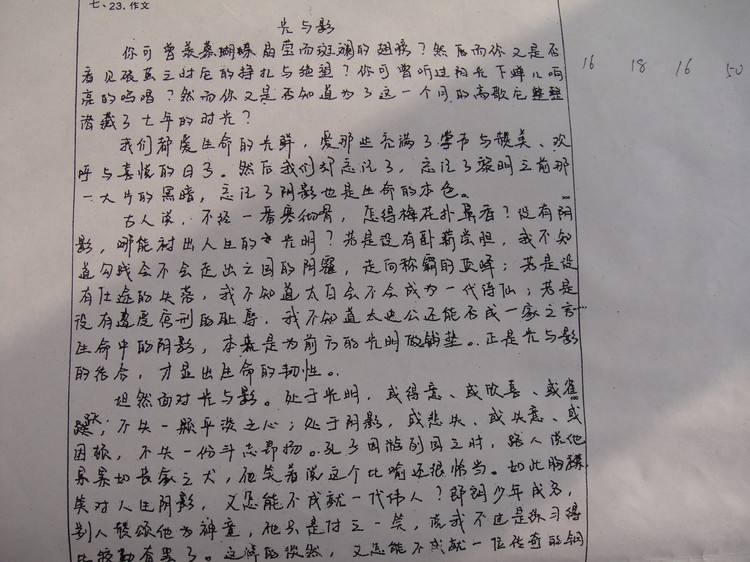 七、23.作文
光与影
你可曾羡慕蝴蝶晶莹而斑斓的翅膀？然后而你又是否
看见破茧之时后的挣扎与绝望？你可曾听过阳光下蝉儿响
亮的鸣唱？然而你又是否知道为了这一个月的高歌它整整
潜藏了七年的时光？
我们都爱生命的光鲜，爱那些充满了掌声与赞美、欢
呼与喜悦的日子。然后我们却忘记了，忘记了黎明之前那
一大片的黑暗，忘记了阴影也是生命的本色。
古人说，不经一番寒彻骨，怎得梅花扑鼻香？没有阴
影，哪能衬出人生的光明？若是没有卧薪尝胆，我不知
道勾践会不会走出亡国的阴霾，走向称霸的巅峰；若是没
有仕途的失落，我不知道太白会不会成为一代诗仙；若是
没有遭受宫刑的耻辱，我不知道太史公还能否成一家之言…
生命中的阴影，本就是为前方的光明做铺垫。正是光与影
的结合，才显出生命的韧性。
坦然面对光与影。处于光明，或得意、或欣喜、或雀
跃，不失一颗平淡之心；处于阴影，或悲失、或失意、或
困顿，不失一份斗志昂扬。孔子周游列国之时，路人说他
累累如丧家之犬，他笑着说这个比喻还很恰当。如此胸襟
笑对人生阴影，又怎能不成就一代伟人？郎朗少年成名，
别人赞颂他为神童，他只是付之一笑，说我不过是练习得
比较勤奋罢了。这样的淡然，又怎能不成就一位传奇的钢
16 18 16 50